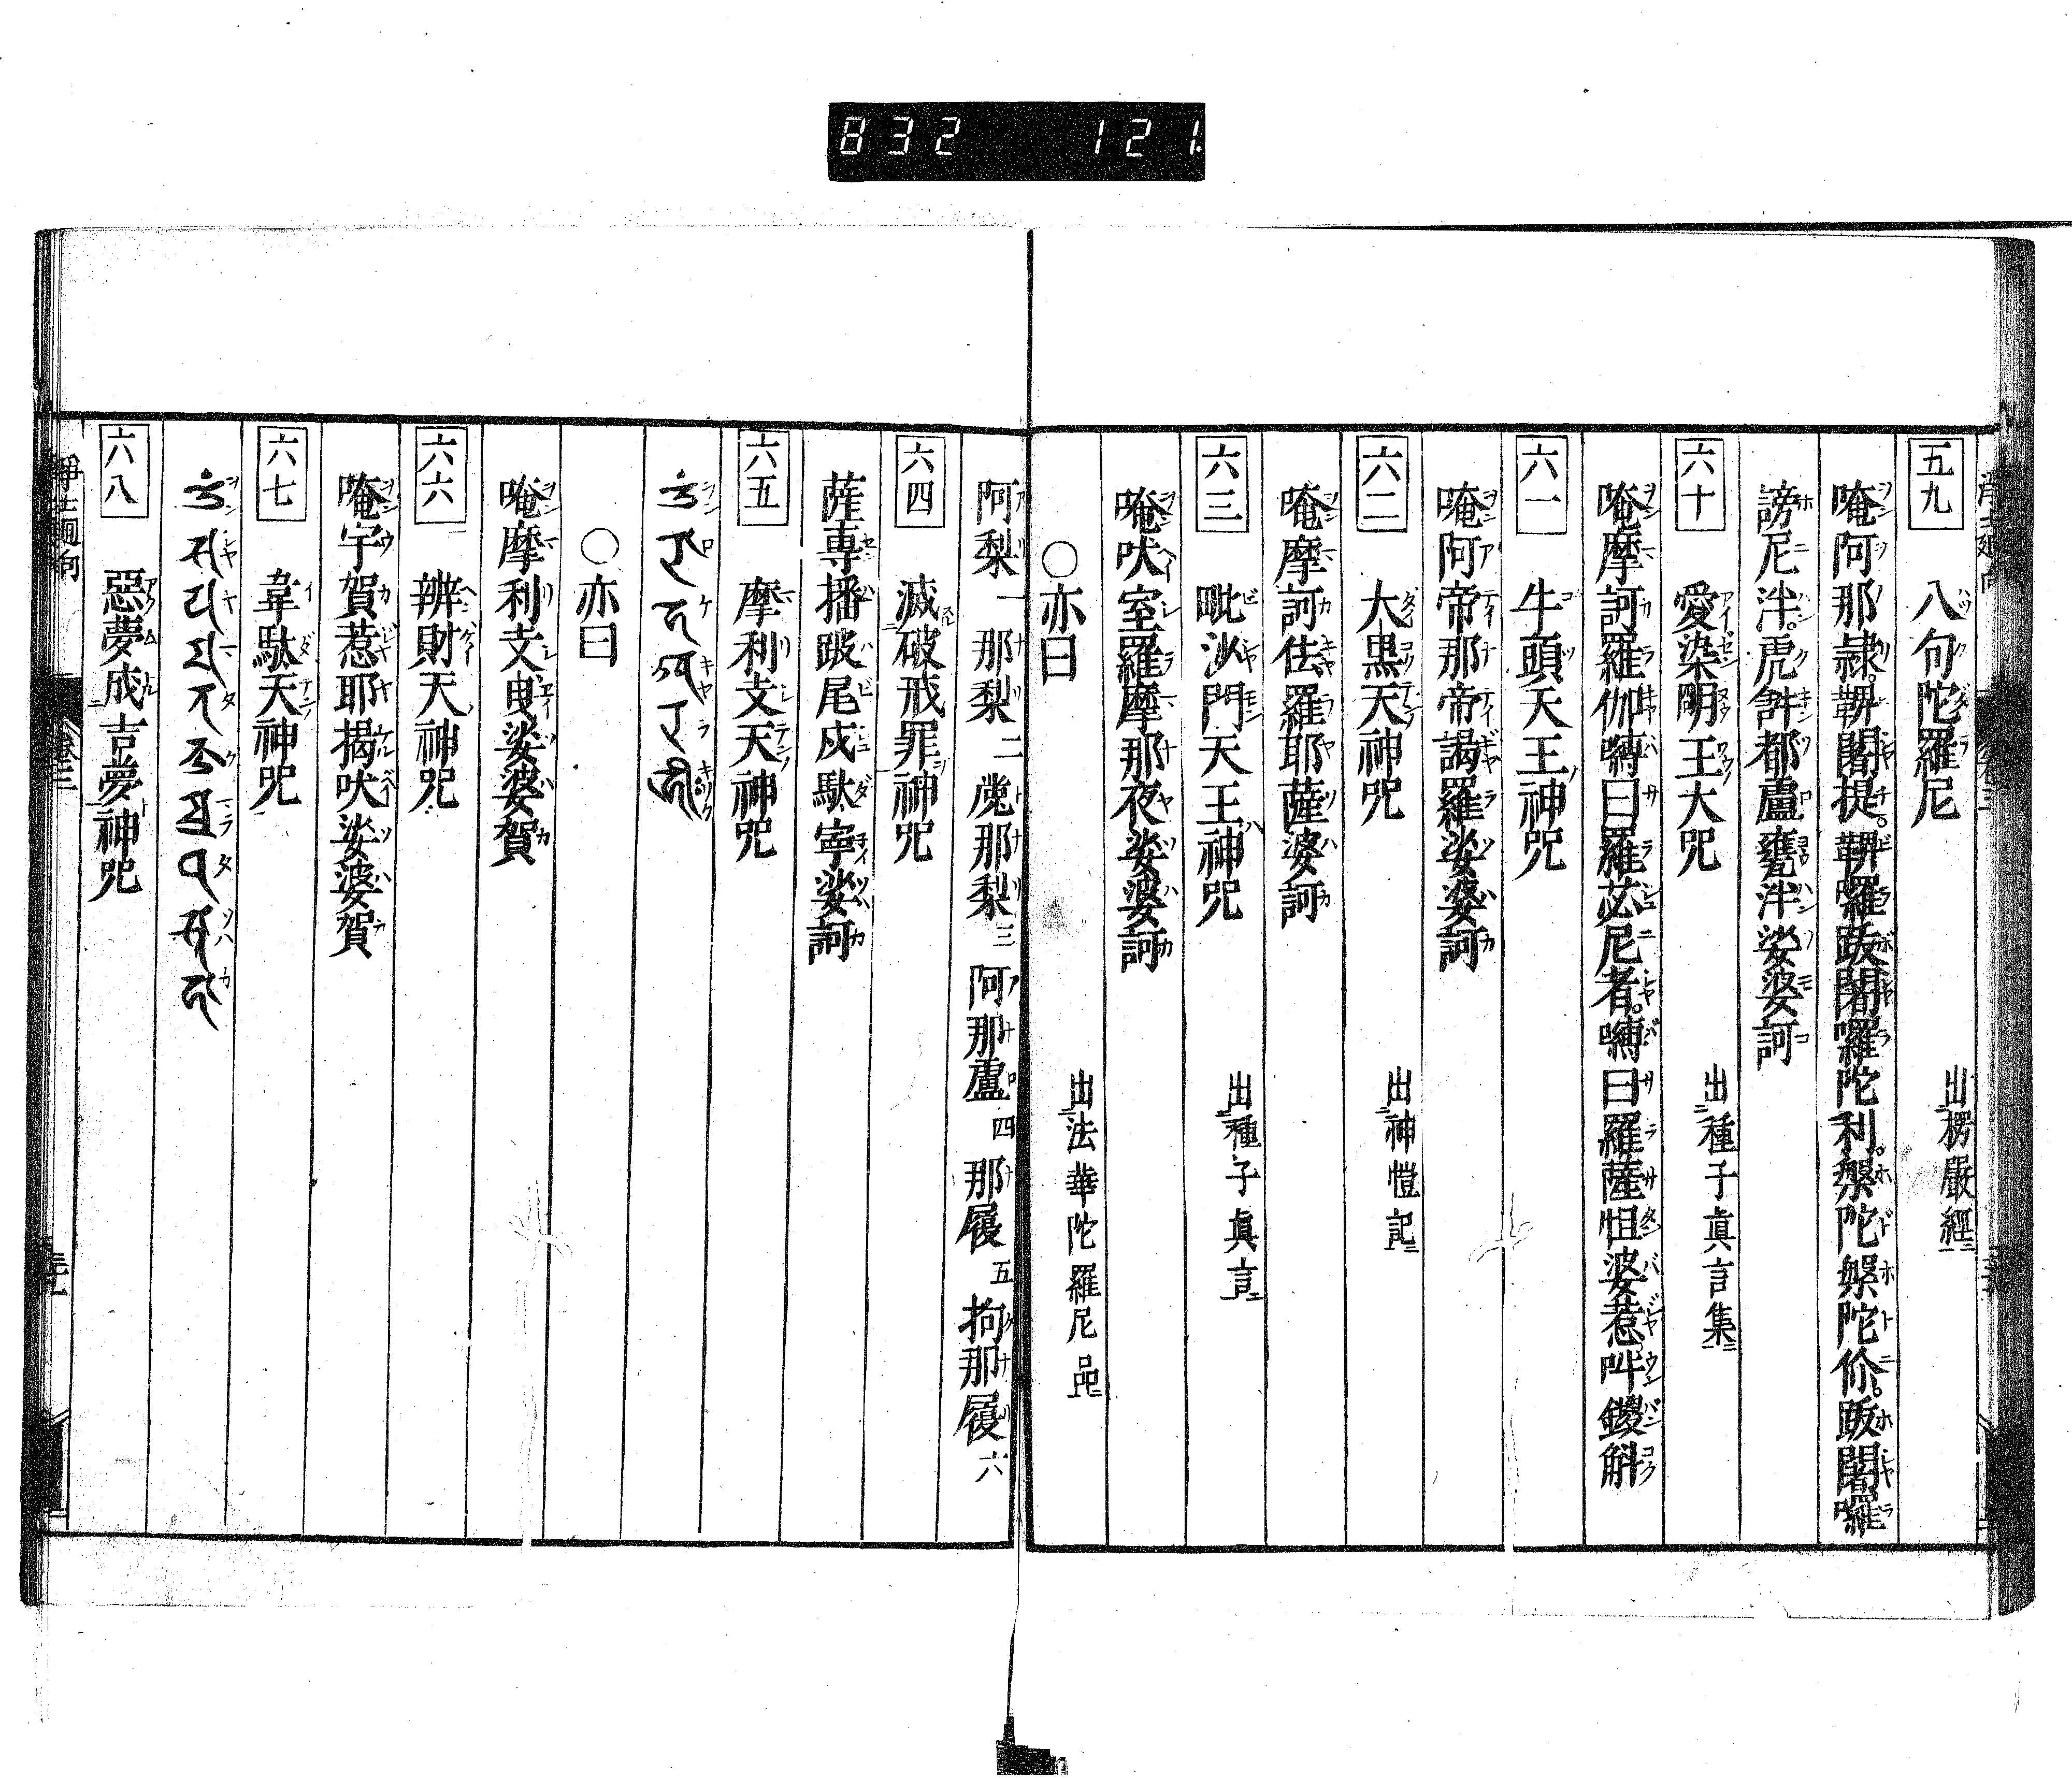 832 121
五九 八句陀羅尼 出楞嚴經
唵阿那隷。鞞闍提。鞞囉跋闍囉陀利。槃陀槃陀你。跋闍囉
謗尼泮。虎𤙖都盧甕泮娑婆訶
六十 愛染明王大咒 出種子眞言集
唵摩訶羅伽嚩日羅苾尼者。嚩日羅薩怛婆惹吽鑁斛
六一 牛頭天王神咒
唵阿帝那帝謁羅娑婆訶
六二 大黒天神咒 出神愷記
唵摩訶佉羅耶薩婆訶
六三 毗沙門天王神咒 出種子眞言
唵吠室羅摩那夜娑婆訶
○亦曰 出法華陀羅尼品
阿梨一 那梨二 㝹那梨三 阿那盧四 那履五 拘那履六
六四 滅破戒罪神咒
薩專播跛尾戍駄寧娑訶
六五 摩利支天神咒
○亦曰
唵摩利支曳娑婆賀
六六 辨財天神咒
唵宇賀惹耶掲吠娑婆賀
六七 韋駄天神咒
六八 惡夢成吉夢神咒